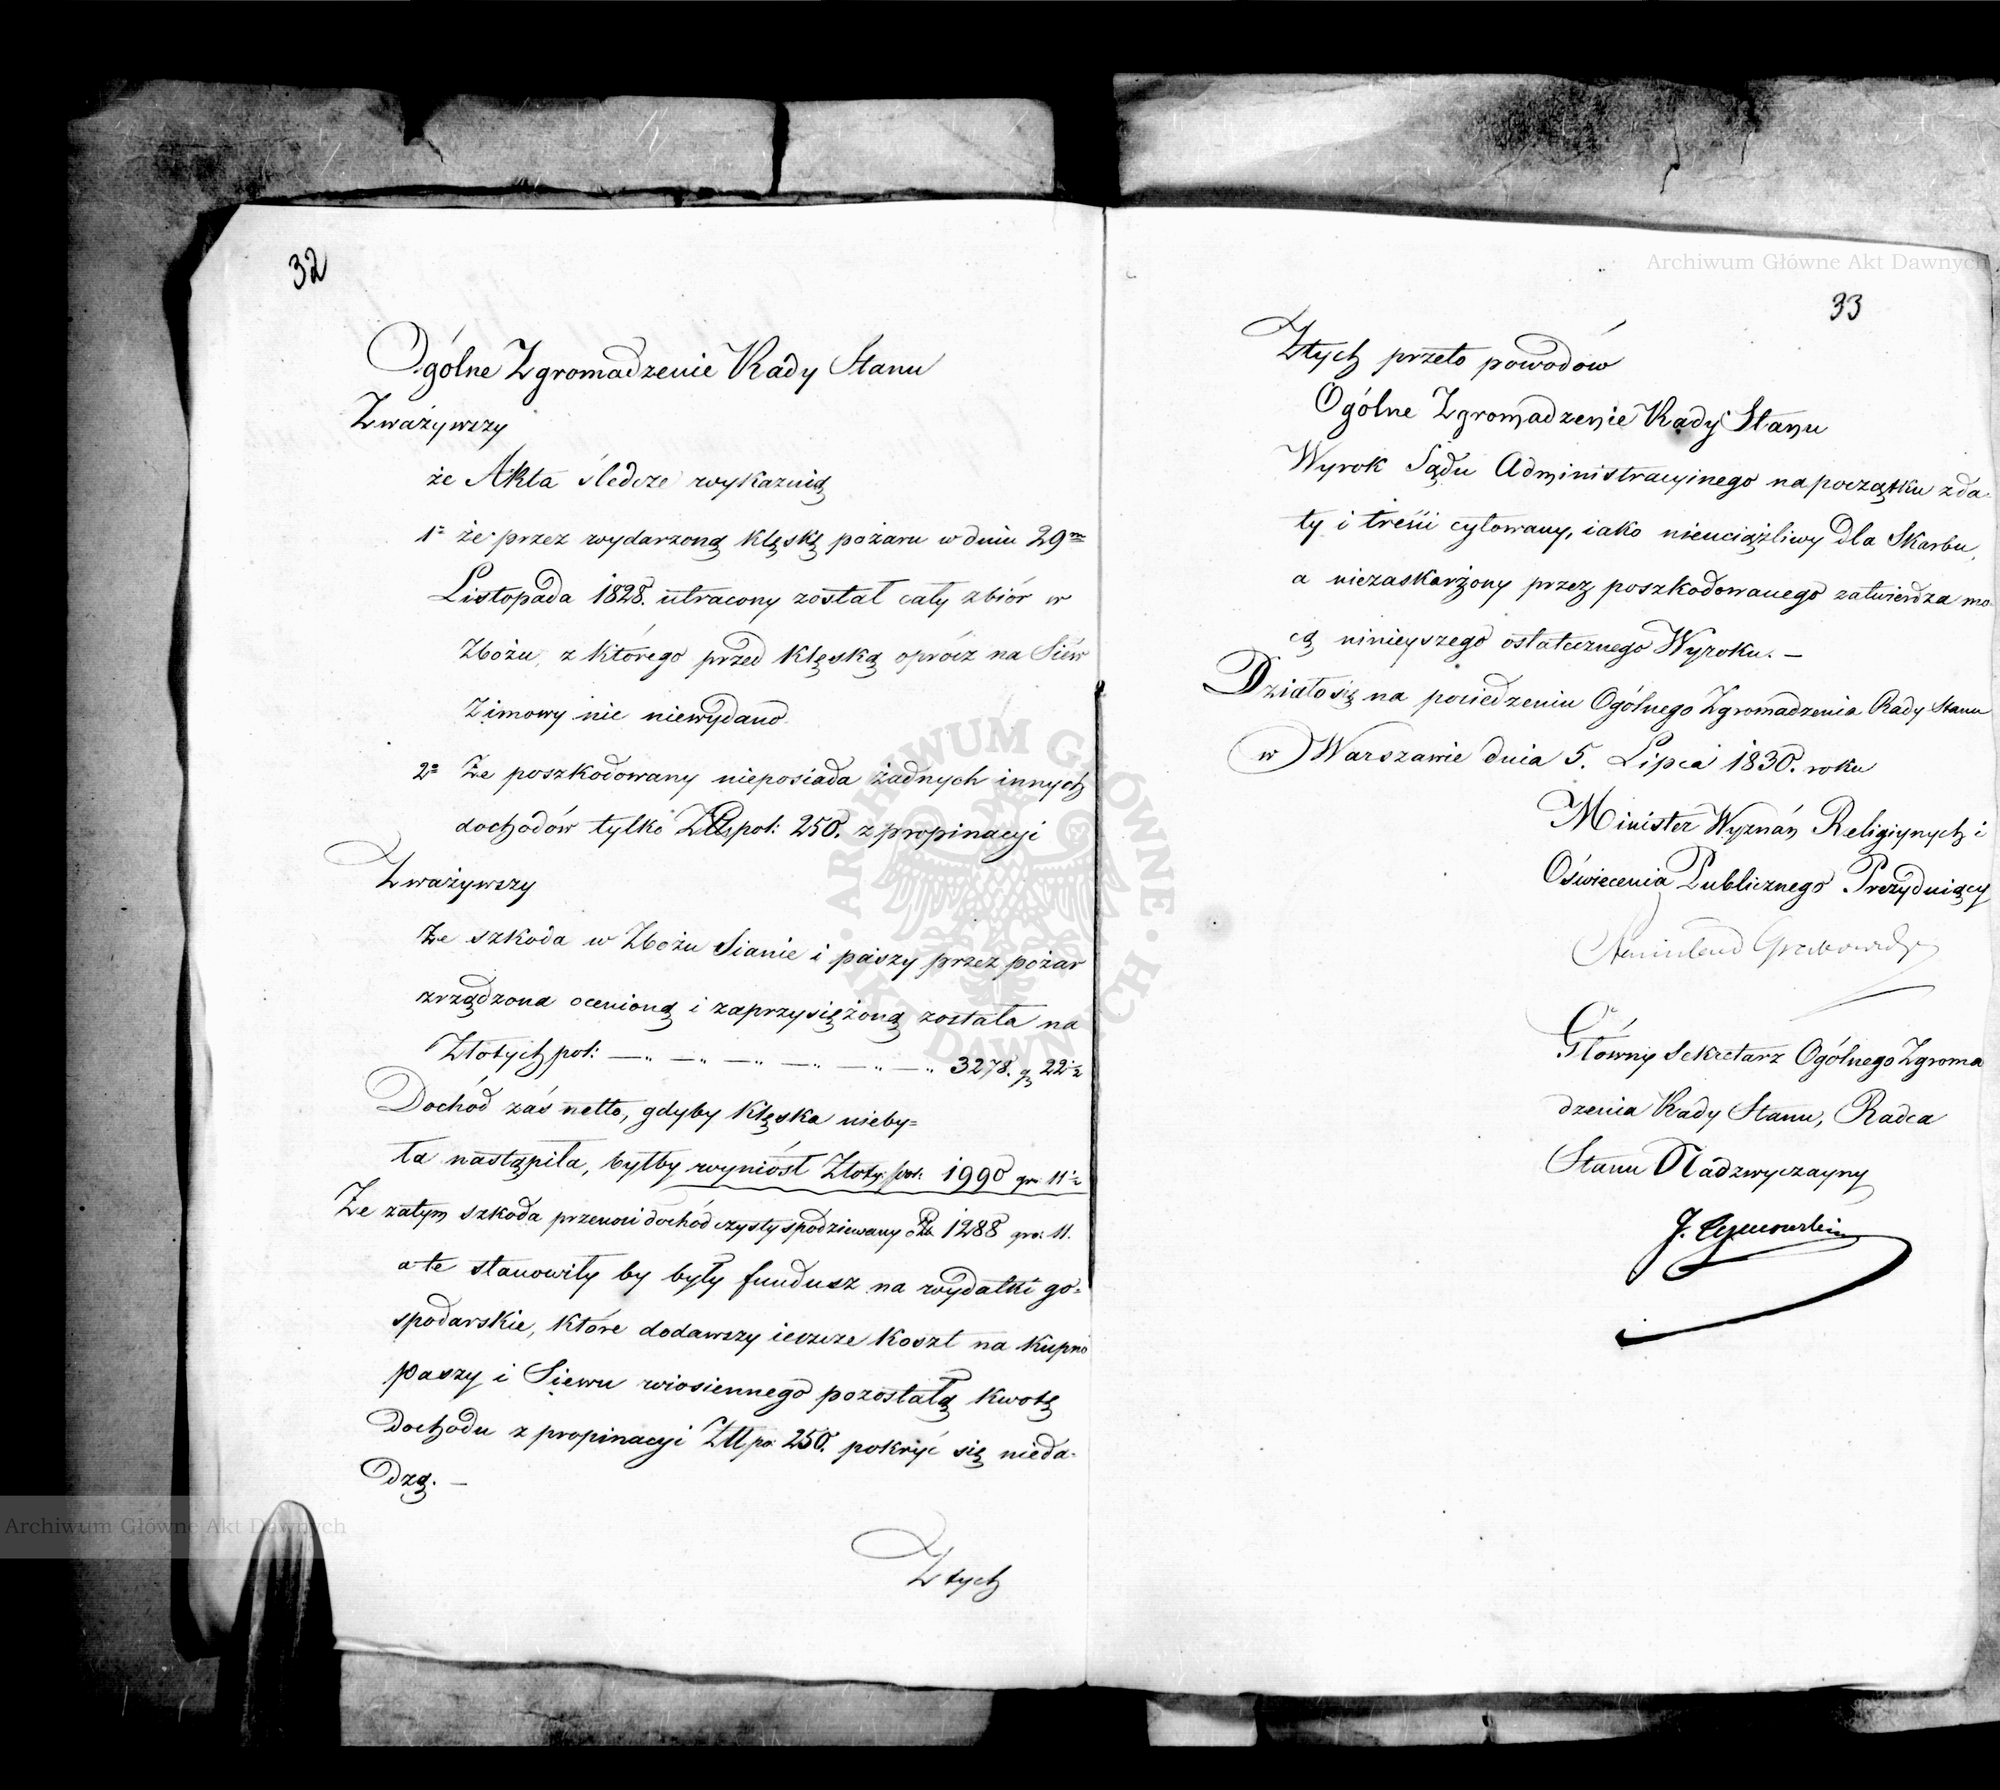 32
Ogólne Zgromadzenie Rady Stanu
Zważywszy
że Akta śledcze wykazuią
1º że przez wydarzoną klęskę pożaru w dniu 29m
Listopada 1828. utracony został cały zbiór w
Zbożu, z którego przed klęską oprócz na Siew
Zimowy nic niewydano
2º Że poszkodowany nieposiada żadnych innych
dochodów tylko Złłpol: 250. z propinacyi
Zważywszy
Że szkoda w Zbożu Sianie i paszy przez pożar
zrządzona ocenioną i zaprzysiężoną została na
Złotych pol: — „ — „ — „ — „ — „ — „ 3278. gr 22½
Dochód zaś netto, gdyby klęska nieby=
ła nastąpiła, byłby wyniósł Złoty: pol: 1990 gr: 11½
Że zatym szkoda przenosi dochód czysty spodziewany o Złp. 1288 gro: 11.
a te stanowiły by były fundusz na wydatki go=
spodarskie, które dodawszy ieszcze koszt na kupno
paszy i Siewu wiosiennego pozostałą kwotą
dochodu z propinacyi Złłpo: 250. pokryć się nieda=
dzą. —
Z tych
Archiwum Główne Akt Dawnych
33
Z tych przeto powodów
Ogólne Zgromadzenie Rady Stanu
Wyrok Sądu Administracyinego na początku z da=
ty i treści cytowany, iako nieuciążliwy dla Skarbu,
a niezaskarżony przez poszkodowanego zatwierdza mo=
cą ninieyszego ostatecznego Wyroku. —
Działo się na posiedzeniu Ogólnego Zgromadzenia Rady Stanu
w Warszawie dnia 5. Lipca 1830. roku
Minister Wyznań Religiynych i
Oświecenia Publicznego Prezyduiący
Stanisław Grabowski
Główny Sekretarz Ogólnego Zgroma
dzenia Rady Stanu, Radca
Stanu Nadzwyczayny
J.
Archiwum Główne Akt Dawnych
ARCHIWUM GŁÓWNE · AKT DAWNYCH ·